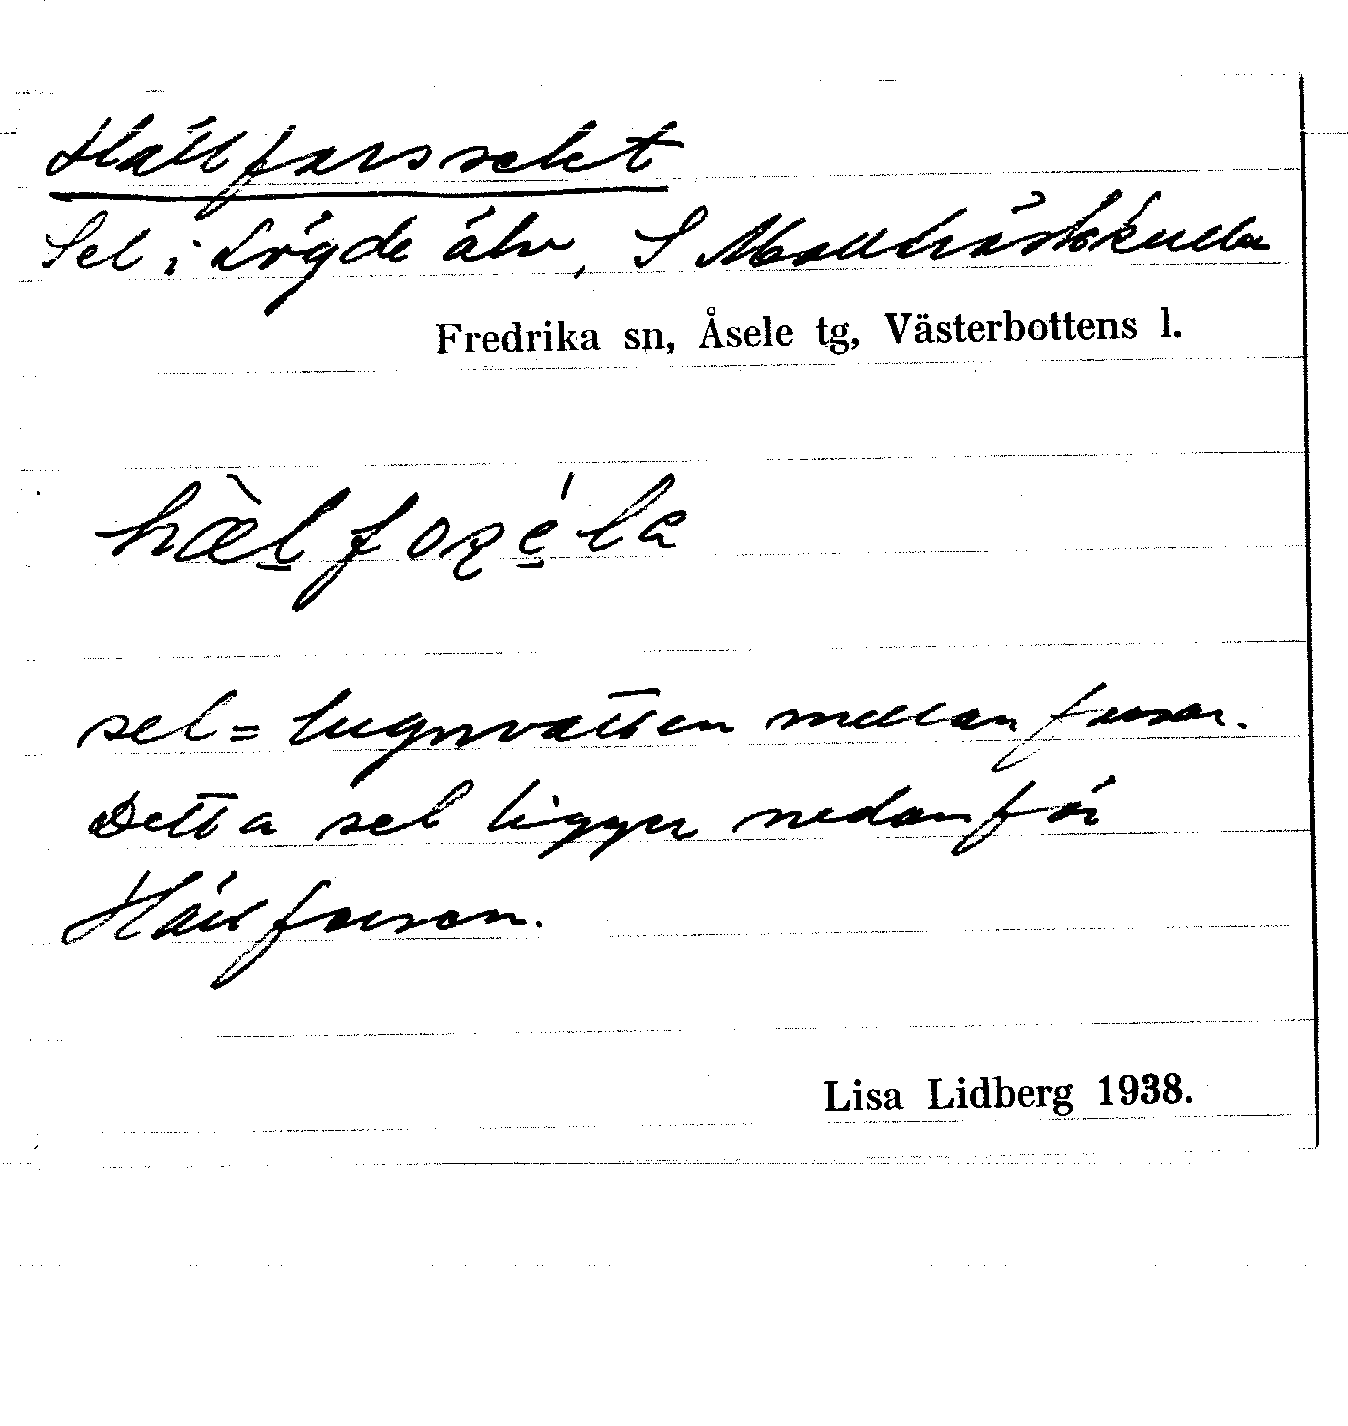 Hällforsselet
Sel i Lögde älv, S Mallträskkulla
Fredrika sn, Åsele tg, Västerbottens l.
sel = lugnvatten mellan forsar.
Detta sel ligger nedanför
Hällforsen.
Lisa Lidberg 1938.